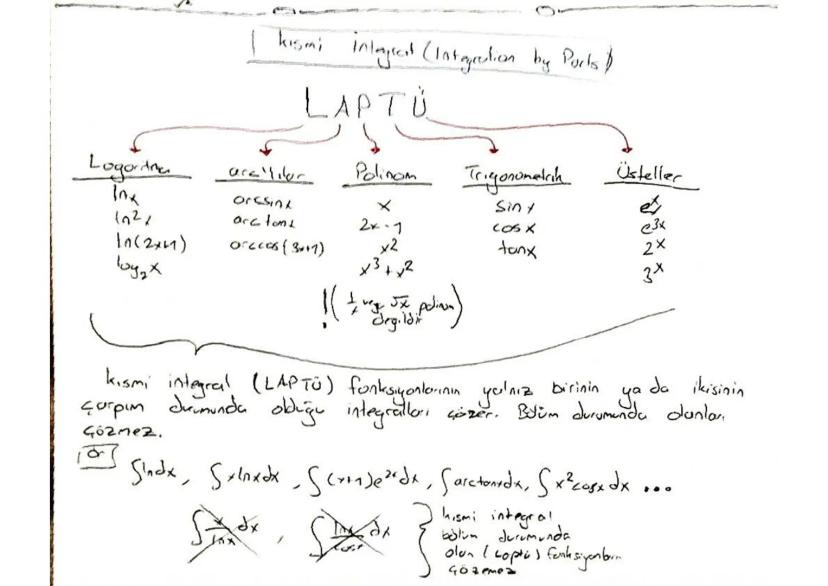 Kısmi integral (Integration by Parts)
LAPTÜ
Logaritma arc'lılar Polinom Trigonometrik Üsteller
lnx arcsinx x sinx eˣ
ln²x arctanx 2x-1 cosx e³ˣ
ln(2x+1) arccos(3x+1) x² tanx 2ˣ
log₂x x³+x² 3ˣ
!(1/x veya √x polinom
değildir)
Kısmi integral (LAPTÜ) fonksiyonlarının yalnız birinin ya da ikisinin
çarpım durumunda olduğu integralleri çözer. Bölüm durumunda olanları
çözmez.
Ör
∫lndx, ∫xlnxdx, ∫(x+1)e²ˣdx, ∫arctanxdx, ∫x²cosxdx ...
∫x/lnx dx, ∫lnx/cosx dx
kısmi integral
bölüm durumunda
olan (laptü) fonksiyonları
çözemez